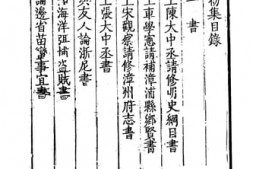 初集目錄
一 書
上陳大中丞請修明史綱目書
上車學憲請補漳浦縣鄉賢書
上宋觀察請修漳州府志書
上張大中丞書
與友人論浙尼書
論海洋弭捕盜賊書
論邊省苗蠻事宜書